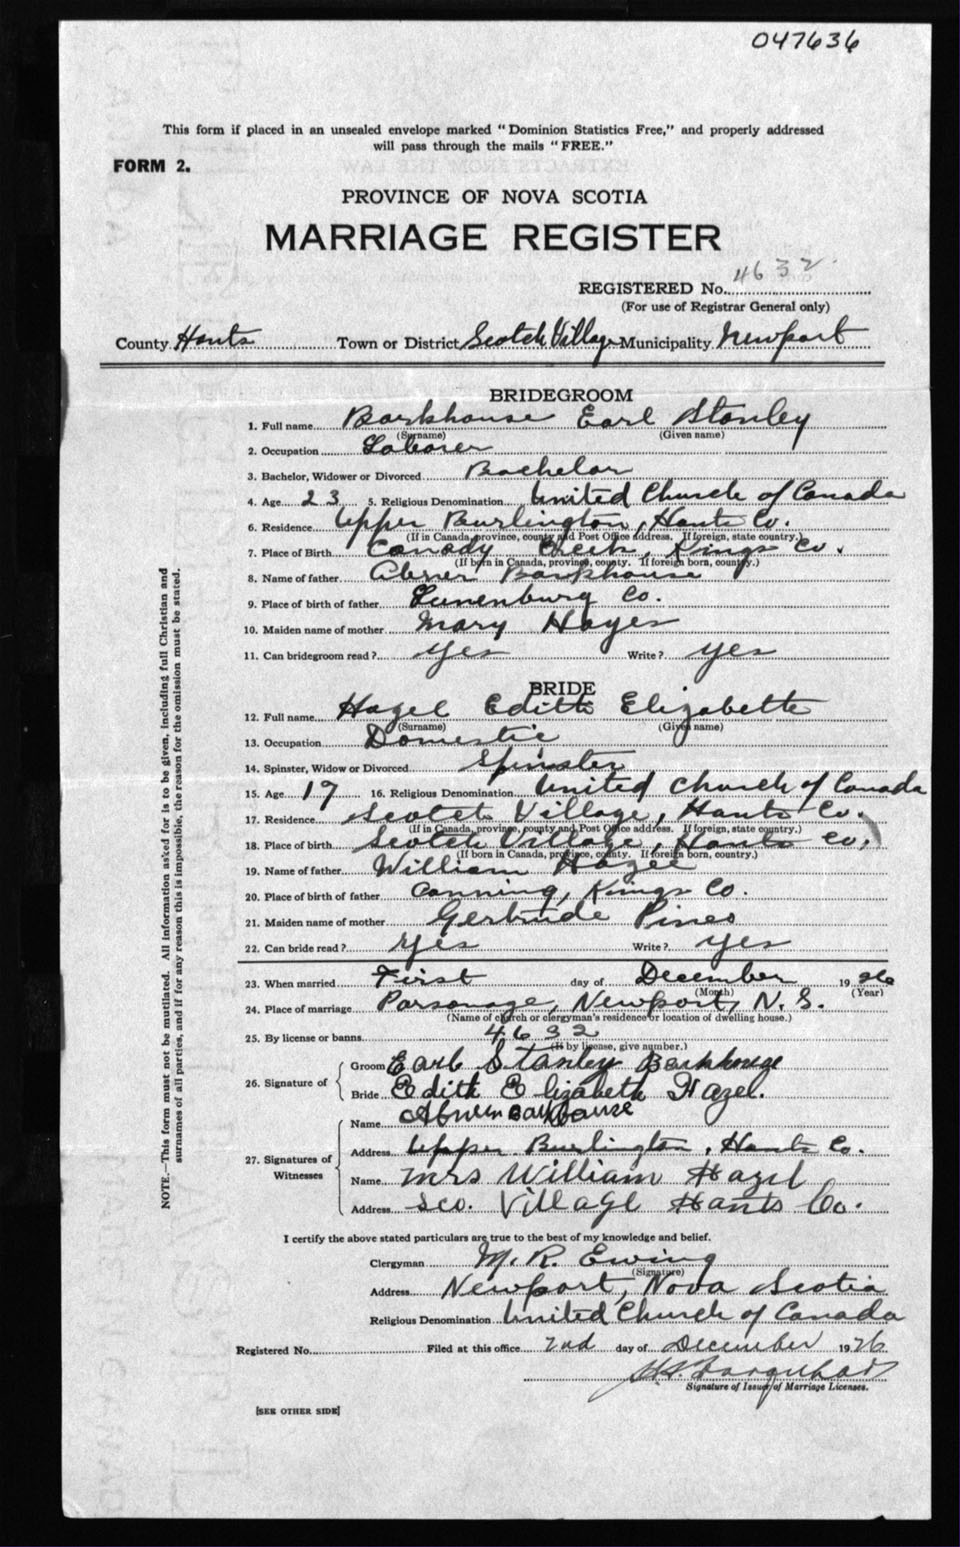 047636
This form if placed in an unsealed envelope marked "Dominion Statistics Free," and properly addressed
will pass through the mails "FREE."
FORM 2.
PROVINCE OF NOVA SCOTIA
MARRIAGE REGISTER
REGISTERED No. 4632
(For use of Registrar General only)
County Hants Town or District Scotch Village Municipality Newport
BRIDEGROOM
1. Full name Barkhouse Earl Stanley
(Surname) (Given name)
2. Occupation Laborer
3. Bachelor, Widower or Divorced Bachelor
4. Age 23 5. Religious Denomination United Church of Canada
6. Residence Upper Burlington, Hants Co.
(If in Canada, province, county and Post Office address. If foreign, state country.)
7. Place of Birth Canady Creek, Kings Co.
(If born in Canada, province, county. If foreign born, country.)
8. Name of father Abner Barkhouse
9. Place of birth of father Lunenburg Co.
10. Maiden name of mother Mary Hayes
11. Can bridegroom read? yes Write? yes
BRIDE
12. Full name Hazel Edith Elizabette
(Surname) (Given name)
13. Occupation Domestic
14. Spinster, Widow or Divorced Spinster
15. Age 19 16. Religious Denomination United Church of Canada
17. Residence Scotch Village, Hants Co.
(If in Canada, province, county and Post Office address. If foreign, state country.)
18. Place of birth Scotch Village, Hants Co.
(If born in Canada, province, county. If foreign born, country.)
19. Name of father William Hazel
20. Place of birth of father Canning, Kings Co.
21. Maiden name of mother Gertrude Pineo
22. Can bride read? yes Write? yes
23. When married First day of December 1926
(Month) (Year)
24. Place of marriage Parsonage, Newport, N.S.
(Name of church or clergyman's residence or location of dwelling house.)
25. By license or banns 4632
(If by license, give number.)
26. Signature of
Groom Earl Stanley Barkhouse
Bride Edith Elizabeth Hazel.
27. Signatures of Witnesses
Name Abner Barkhouse
Address Upper Burlington, Hants Co.
Name Mrs William Hazel
Address Sco. Village Hants Co.
I certify the above stated particulars are true to the best of my knowledge and belief.
Clergyman M. R. Ewing
(Signature)
Address Newport, Nova Scotia
Religious Denomination United Church of Canada
Registered No. Filed at this office 2nd day of December 1926
Farquhar
Signature of Issuer of Marriage Licenses.
[SEE OTHER SIDE]
NOTE.—This form must not be mutilated. All information asked for is to be given, including full Christian and
surnames of all parties, and if for any reason this is impossible, the reason for the omission must be stated.